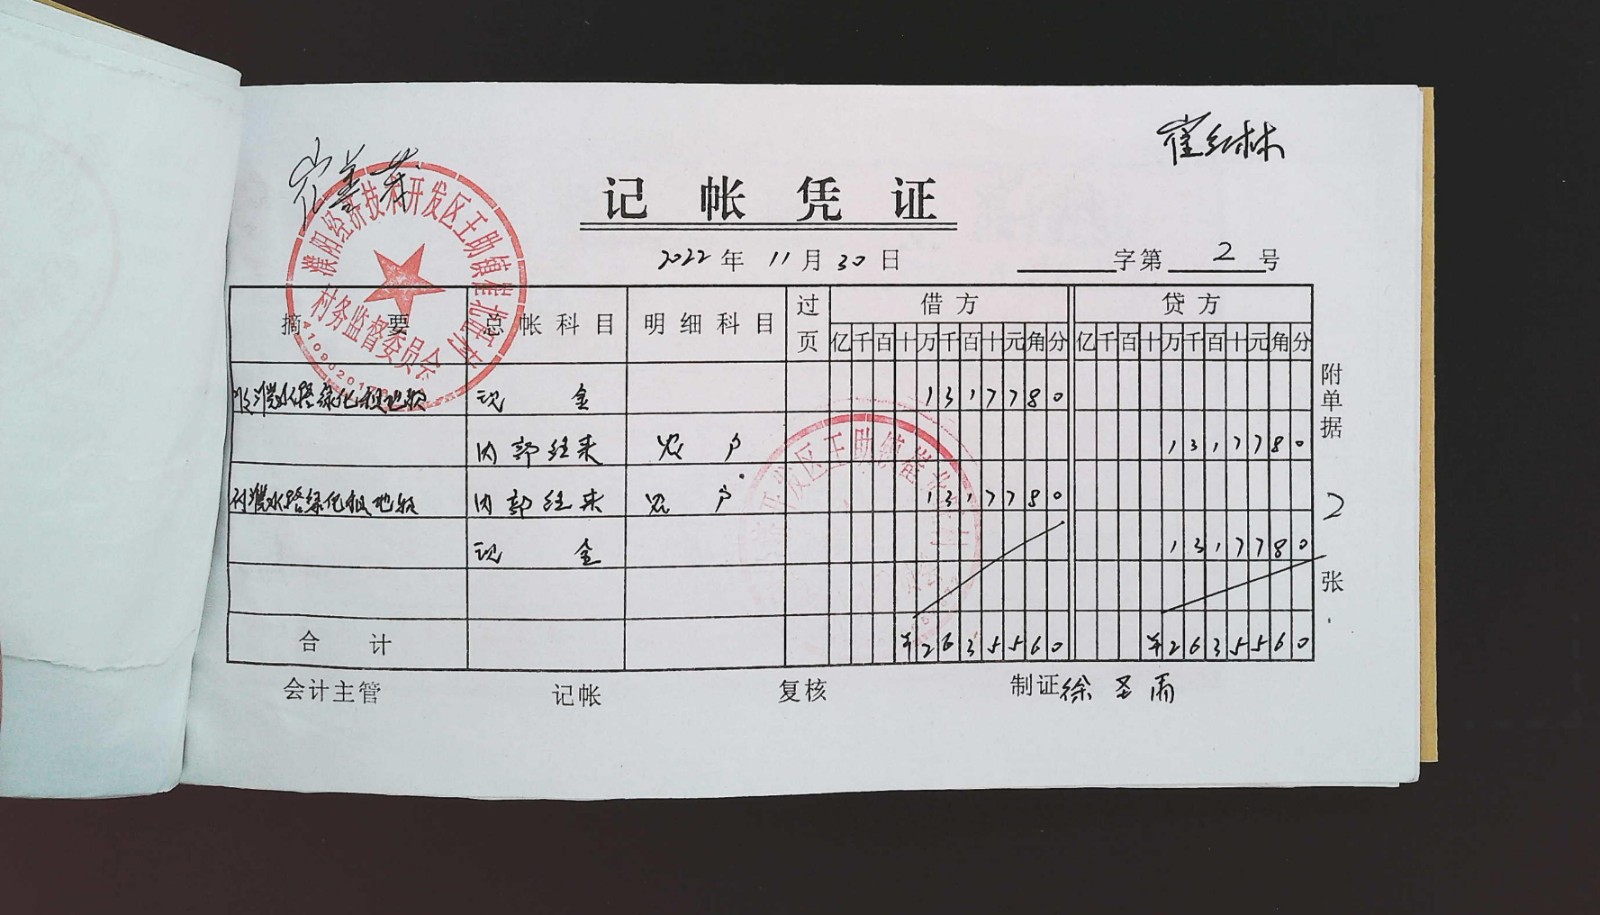 崔红林
记帐凭证
2022年11月30日 字第2号
濮阳经济技术开发区王助镇崔北
村务监督委员会
摘要 总帐科目 明细科目 过页 借方 贷方
亿千百十万千百十元角分 亿千百十万千百十元角分
收濮水路绿化租地款 现金 1317780
内部往来 农户 1317780
付濮水路绿化租地款 内部往来 农户 1317780
现金 1317780
合计 ¥2635560 ¥2635560
附单据2张
会计主管 记帐 复核 制证 徐圣雨
开发区王助镇崔北